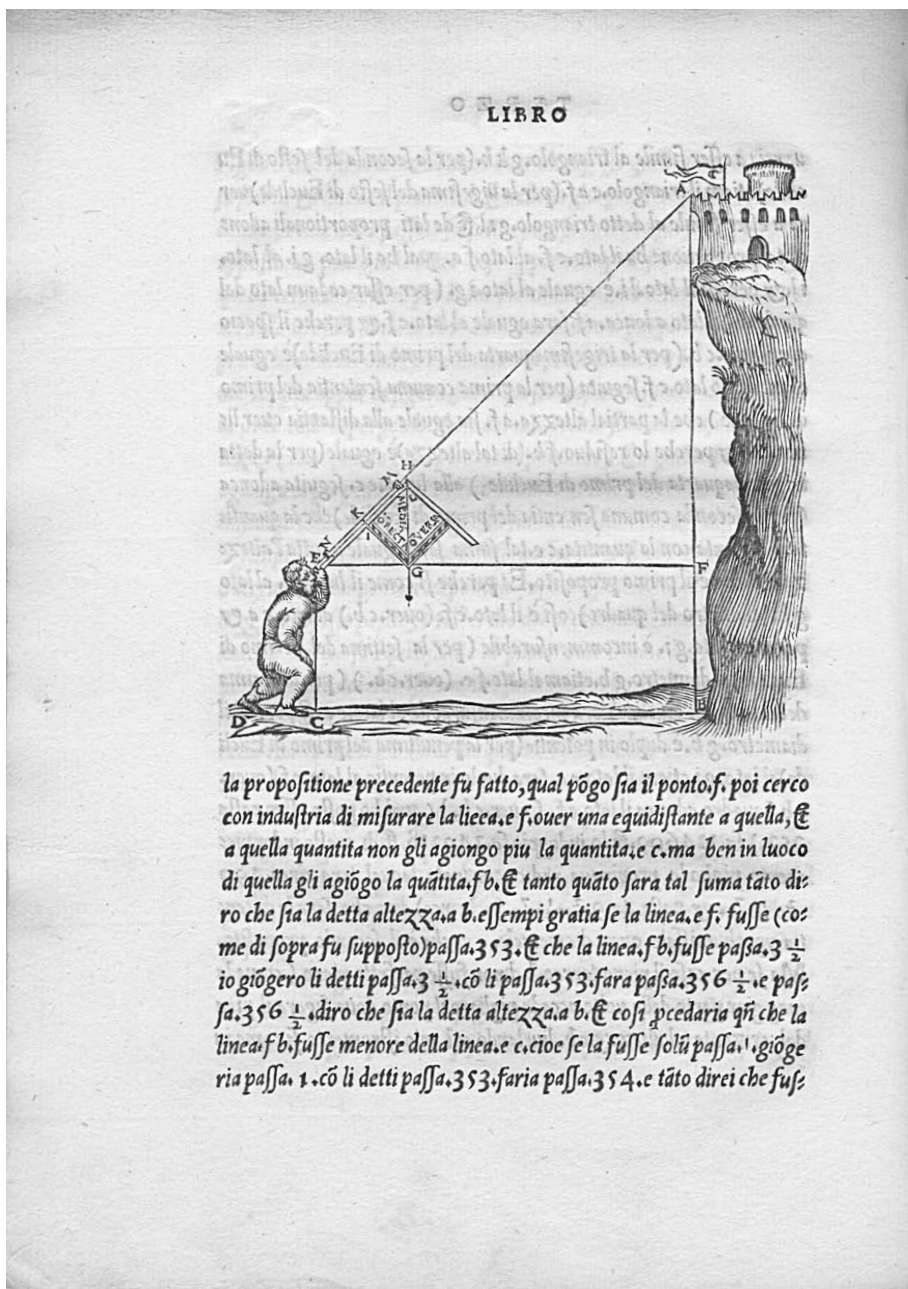 LIBRO
A
H
M
K
MEDIA
ORECT
OVERSA
I
N
E
G
F
D
C
B
la propositione precedente fu fatto, qual põgo ſia il ponto.f. poi cerco
con induſtria di miſurare la lieea.e f.ouer una equidiſtante a quella, &
a quella quantita non gli agiongo piu la quantita.e c.ma ben in luoco
di quella gli agiõgo la quãtita.f b.& tanto quãto ſara tal ſuma tãto di:
ro che ſia la detta altezza.a b.eſſempi gratia ſe la linea.e f. fuſſe (co:
me di ſopra fu ſuppoſto)paſſa.353.& che la linea.f b.fuſſe paßa.3 1/2
io giõgero li detti paſſa.3 1/2.cõ li paſſa.353.fara paßa.356 1/2.e paſ:
ſa.356 1/2.diro che ſia la detta altezza.a b.& coſi ꝓcedaria qñ che la
linea.f b.fuſſe menore della linea.e c.cioe ſe la fuſſe ſolũ paſſa.1.giõge
ria paſſa.1.cõ li detti paſſa.353.faria paſſa.354.e tãto direi che fuſ: